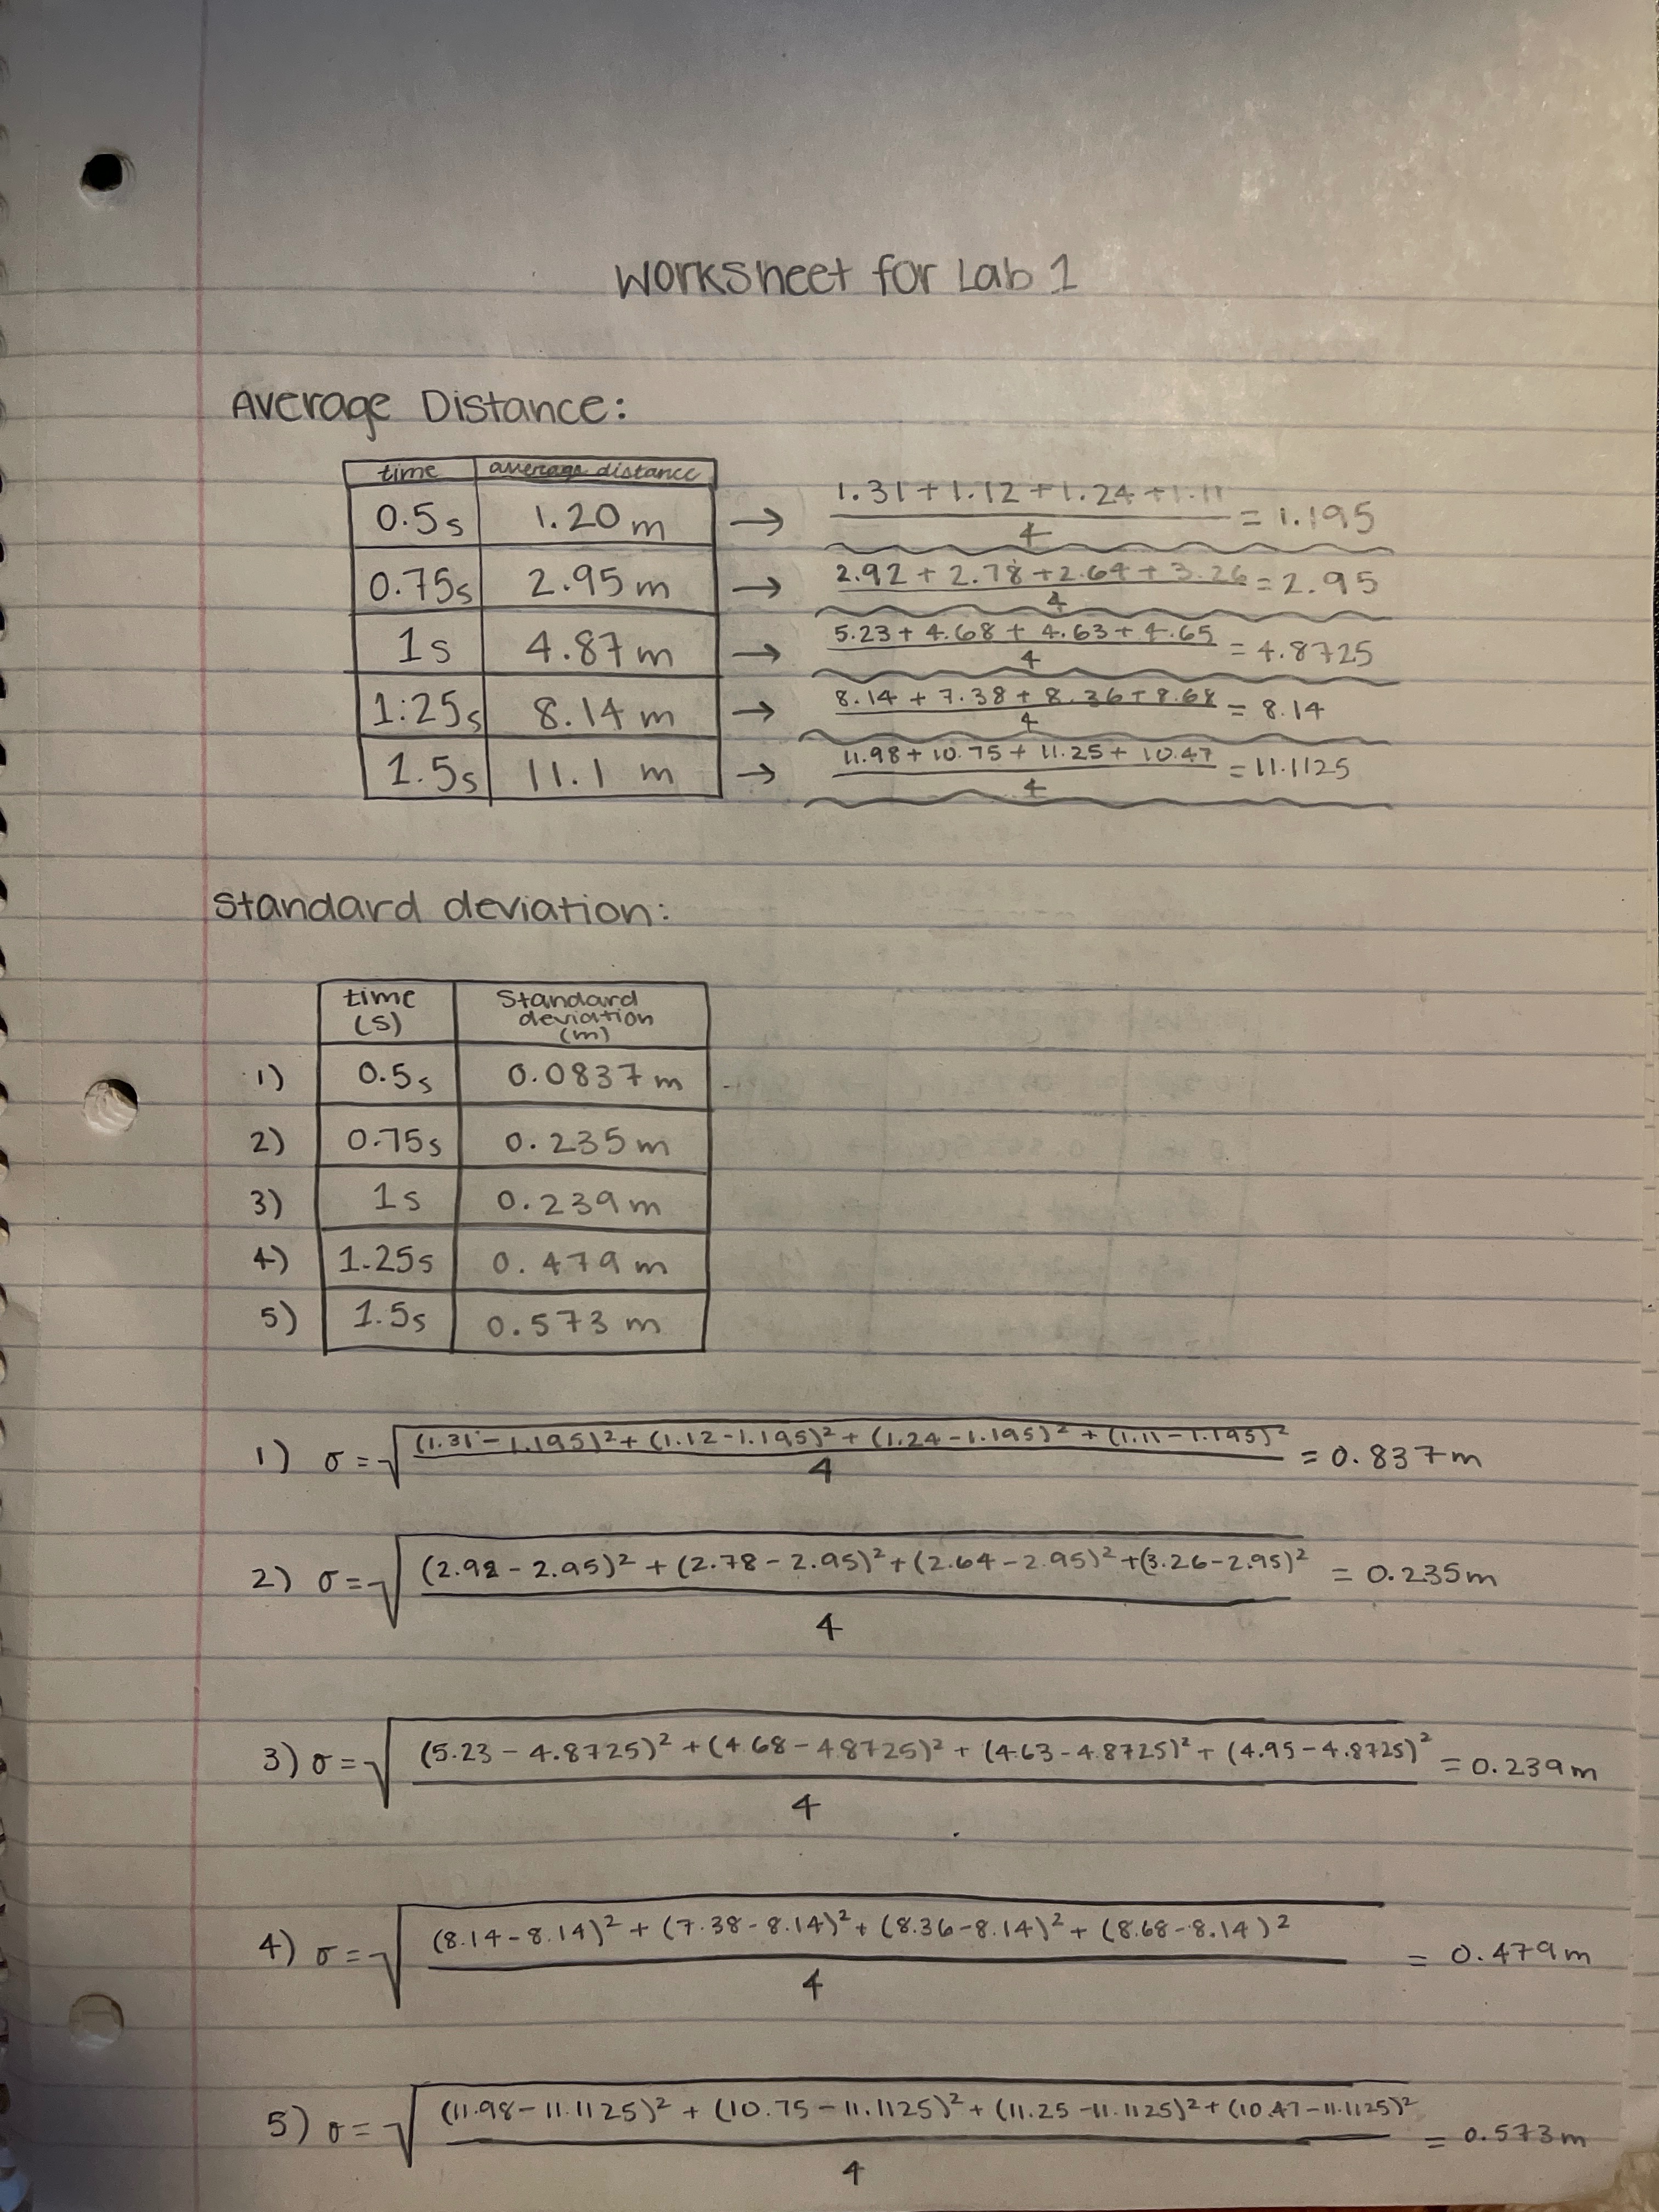 Worksheet for Lab 1
Average Distance:
time average distance
0.5s 1.20 m → (1.31 + 1.12 + 1.24 + 1.11)/4 = 1.195
0.75s 2.95 m → (2.92 + 2.78 + 2.64 + 3.26)/4 = 2.95
1s 4.87 m → (5.23 + 4.68 + 4.63 + 4.65)/4 = 4.8725
1:25s 8.14 m → (8.14 + 7.38 + 8.36 + 8.68)/4 = 8.14
1.5s 11.1 m → (11.98 + 10.75 + 11.25 + 10.47)/4 = 11.1125
Standard deviation:
time (s) Standard deviation (m)
1) 0.5s 0.0837 m
2) 0.75s 0.235 m
3) 1s 0.239 m
4) 1.25s 0.479 m
5) 1.5s 0.573 m
1) σ = √((1.31 - 1.195)² + (1.12 - 1.195)² + (1.24 - 1.195)² + (1.11 - 1.195)²)/4 = 0.837 m
2) σ = √((2.92 - 2.95)² + (2.78 - 2.95)² + (2.64 - 2.95)² + (3.26 - 2.95)²)/4 = 0.235 m
3) σ = √((5.23 - 4.8725)² + (4.68 - 4.8725)² + (4.63 - 4.8725)² + (4.95 - 4.8725)²)/4 = 0.239 m
4) σ = √((8.14 - 8.14)² + (7.38 - 8.14)² + (8.36 - 8.14)² + (8.68 - 8.14)²)/4 = 0.479 m
5) σ = √((11.98 - 11.1125)² + (10.75 - 11.1125)² + (11.25 - 11.1125)² + (10.47 - 11.1125)²)/4 = 0.573 m